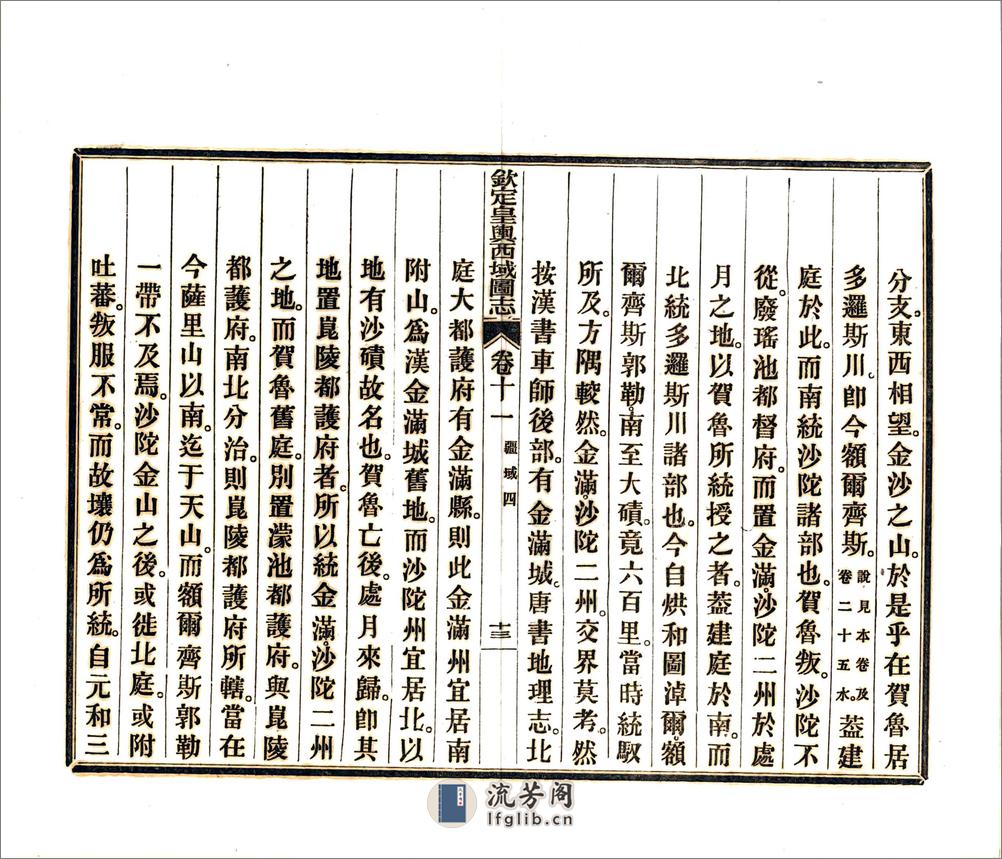 分支。東西相望。金沙之山。於是乎在賀魯居
多邏斯川。卽今額爾齊斯。說見本卷及卷二十五水。葢建
庭於此。而南統沙陀諸部也。賀魯叛。沙陀不
從。廢瑤池都督府。而置金滿。沙陀二州於處
月之地。以賀魯所統授之者。葢建庭於南。而
北統多邏斯川諸部也。今自烘和圖淖爾。額
爾齊斯郭勒。南至大磧。竟六百里。當時統馭
所及。方隅較然。金滿。沙陀二州。交界莫考。然
按漢書車師後部。有金滿城。唐書地理志。北
欽定皇輿西域圖志 卷十一 疆域四 十三
庭大都護府有金滿縣。則此金滿州宜居南
附山。爲漢金滿城舊地。而沙陀州宜居北。以
地有沙磧故名也。賀魯亡後。處月來歸。卽其
地置崑陵都護府者。所以統金滿。沙陀二州
之地。而賀魯舊庭。別置濛池都護府。與崑陵
都護府。南北分治。則崑陵都護府所轄。當在
今薩里山以南。迄于天山。而額爾齊斯郭勒
一帶不及焉。沙陀金山之後。或徙北庭。或附
吐蕃。叛服不常。而故壤仍爲所統。自元和三
流芳阁
lfglib.cn